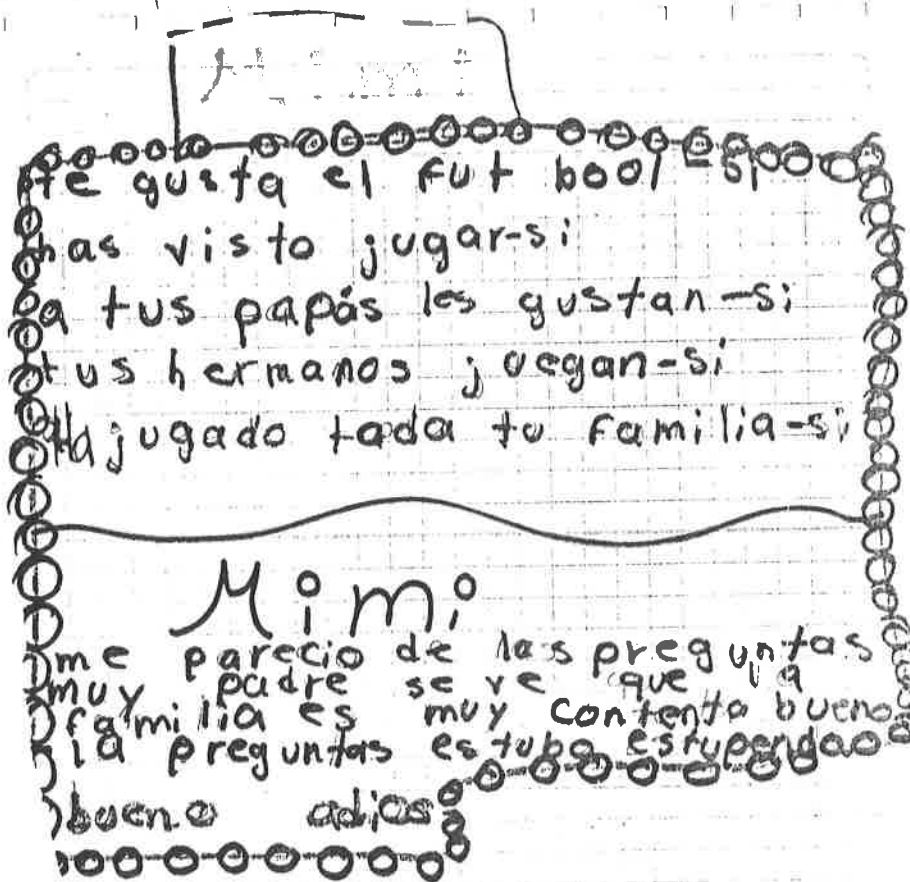 Mimi
te gusta el fut bool-si
has visto jugar-si
a tus papás les gustan-si
tus hermanos juegan-si
Ha jugado toda tu familia-si
Mimi
me parecio de las preguntas
muy padre se ve que a
familia es muy contenta bueno
la preguntas estubo estupendo
bueno adios